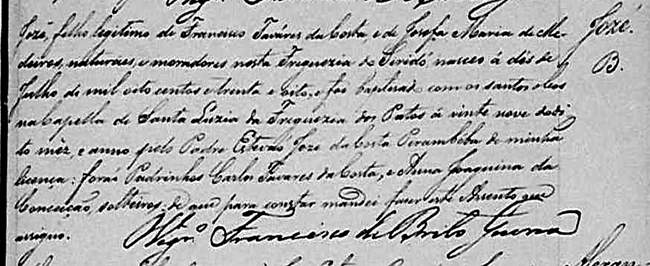 José, filho legitimo de Francisco Tavares da Costa, e de Josefa Maria de Me-
deiros, naturaes, e moradores nesta Freguezia do Seridó nasceo á dés de
Julho de mil oito centos e trinta e oito, e foi baptizado com os santos oleos
na Capella de Santa Luzia da Freguezia dos Patos á vinte nove do di-
to mez, e anno pelo Padre Estevaõ José da Costa Pirambeba de minha
licença: foraõ Padrinhos Carlos Tavares da Costa, e Anna Joaquina da
Conceiçaõ, solteiros; de que para constar mandei fazer este Assento, que
assigno.
Francisco de Brito Guerra
José.
B.